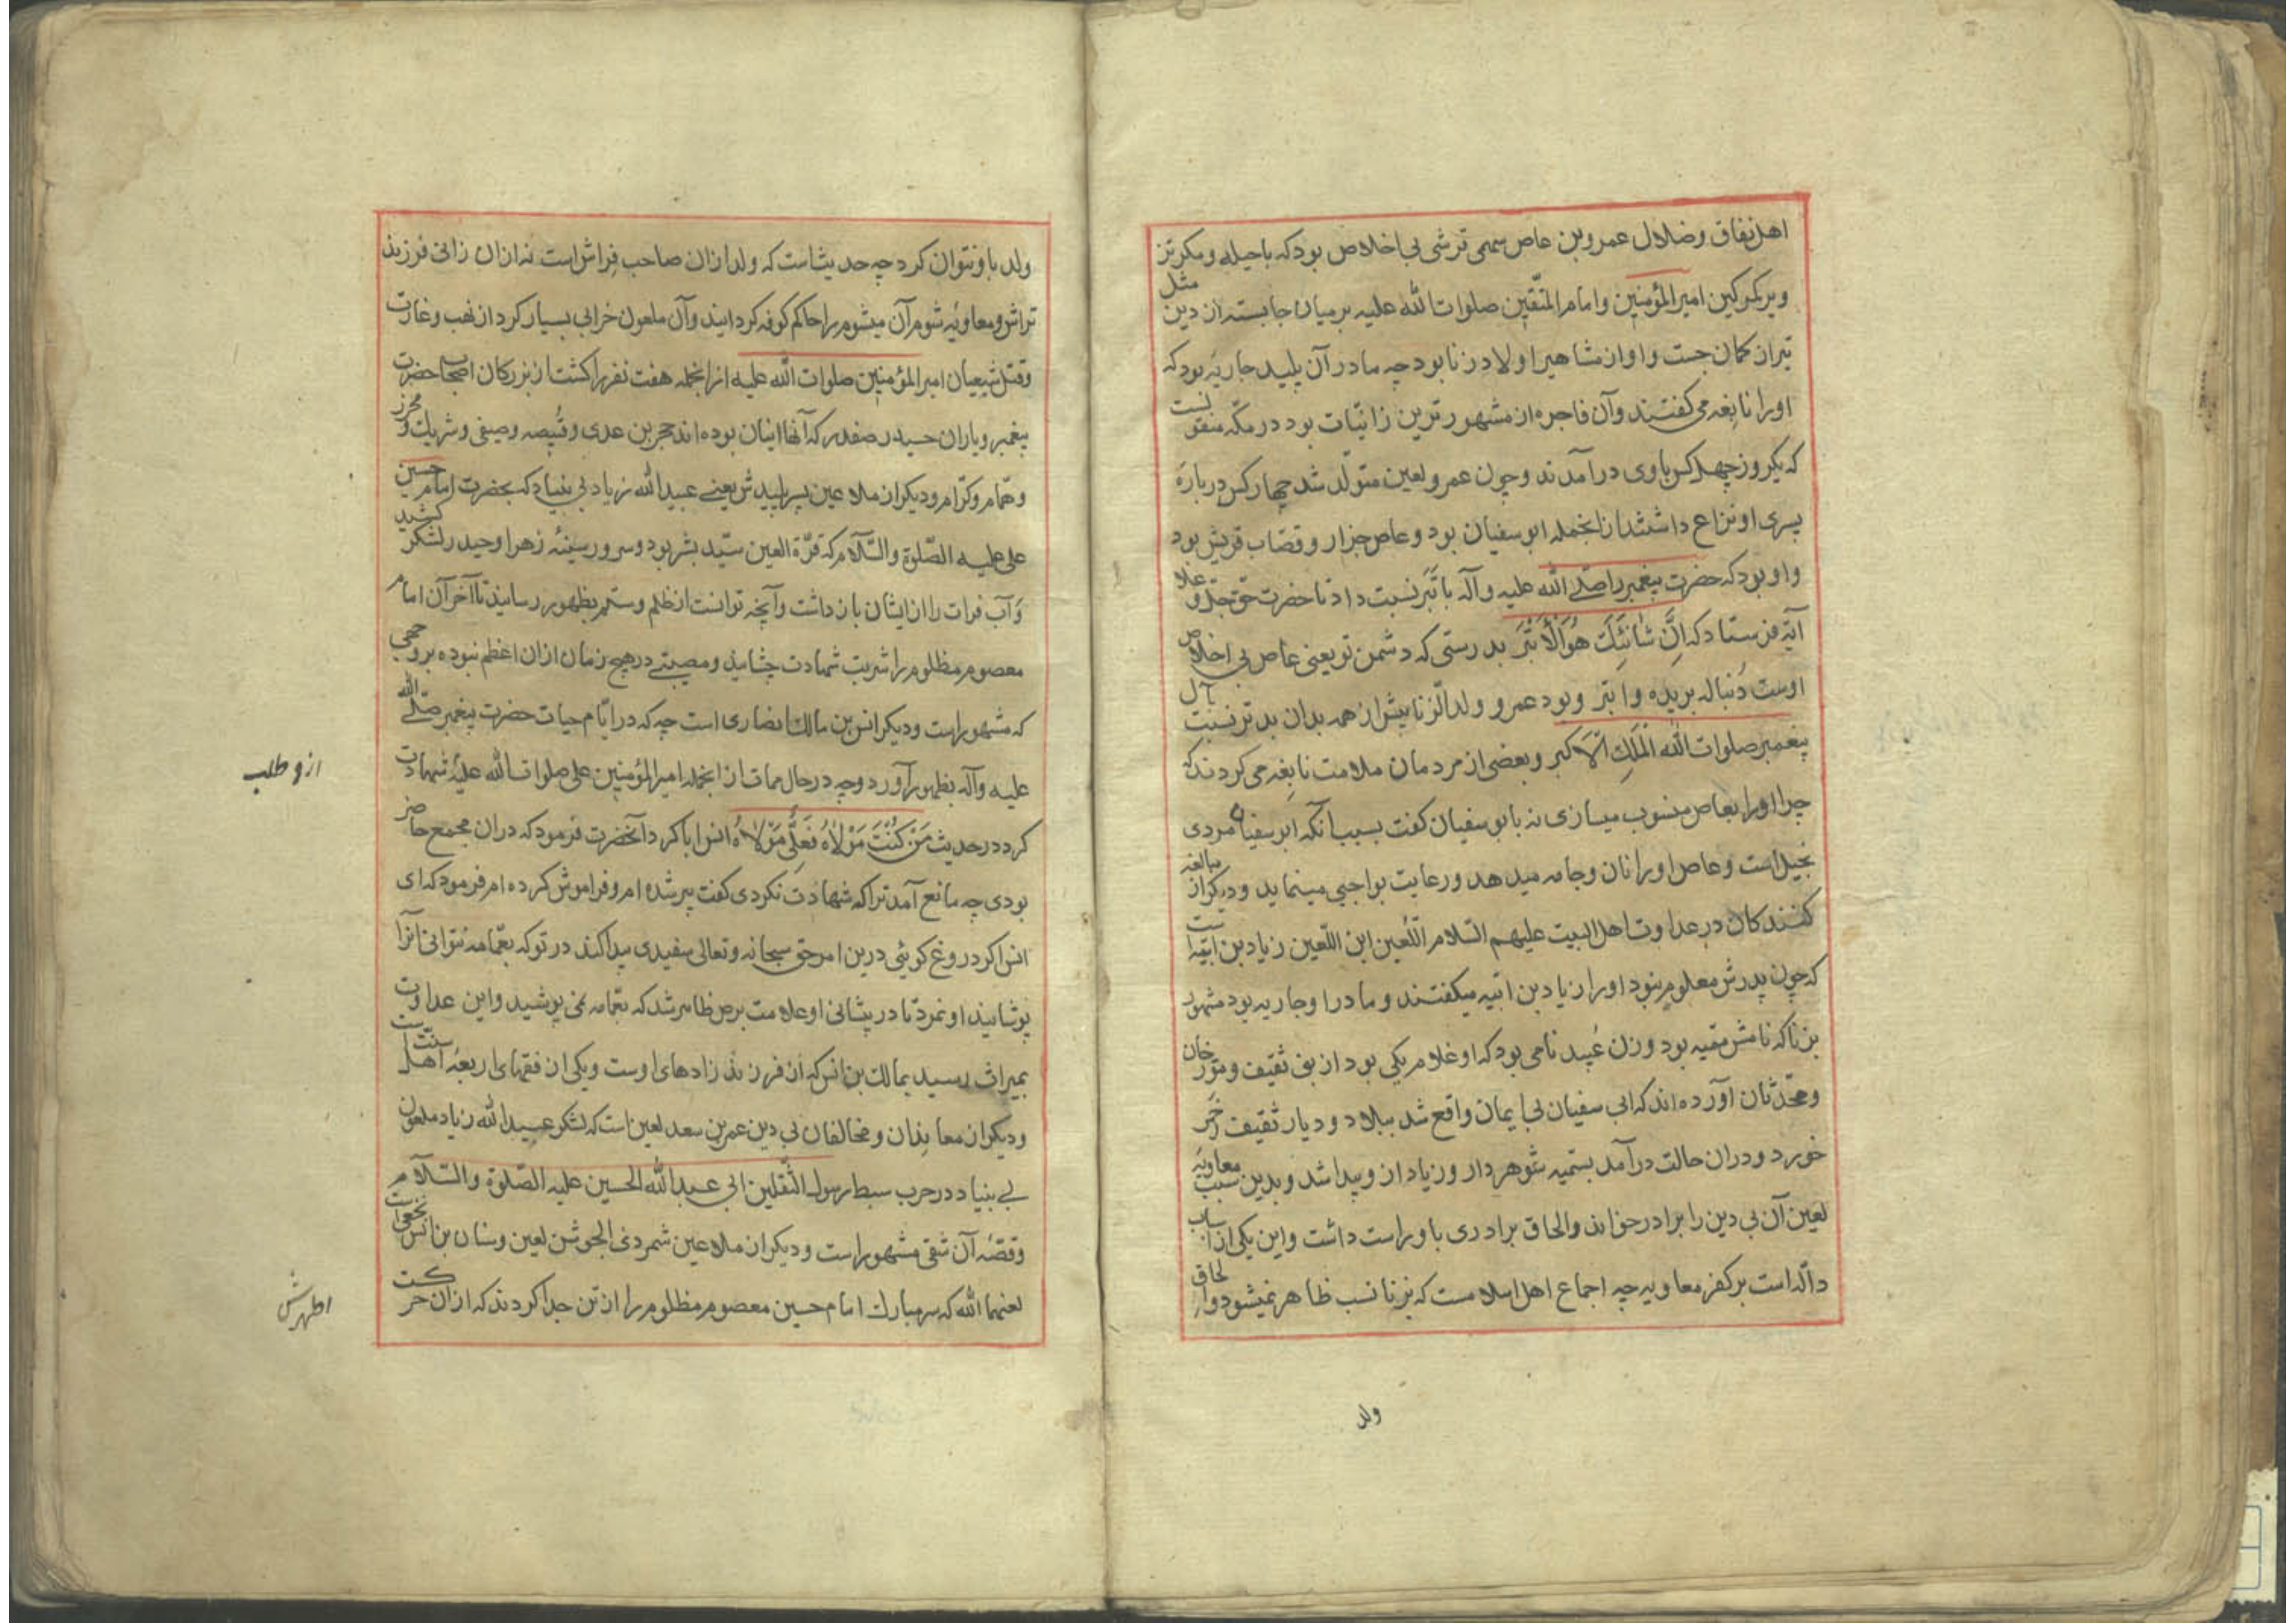 اهل نفاق و ضلال عمرو بن عاص سهمی قرشی بی اخلاص بود که با حیله و مکر تز
و بر کمر کین امیر المؤمنین و امام المتّقین صلوات الله علیه بر میان جا بسته از دین مثل
تیر از کمان جست و او از مشاهیر اولاد زنا بود چه مادر آن پلید جاریه بود که
او را نابغه می کفتند و آن فاجره از مشهور ترین زانیّات بود در مکّه منقولست
که یکروز چهل کس باوی در آمدند و چون عمرو لعین متولّد شد چهار کس درباره
پسری او نزاع داشتند از انجمله ابو سفیان بود و عاص جزار و قصّاب قریش بود
و او بود که حضرت پیغمبر را صلّی الله علیه و آله با بتر نسبت داد تا حضرت حق جلّ و علا
آیه فرستاد که اِنَّ شٰانِئَکَ هُوَ الْاَبْتَرُ بدرستی که دشمن تو یعنی عاص بی اخلاص
اوست دُنباله بریده و ابتر و بود عمرو ولد الزنا بیش از همه بدان بدتر نسبت بآل
پیغمبر صلوات الله الْمَلِکِ الْاَکبر و بعضی از مردمان ملامت نابغه می کردند که
چرا او را بعاص منسوب میسازی نه بابو سفیان کفت بسبب آنکه ابو سفیان مردی
بخیل است و عاص او را نان و جامه میدهد و رعایت بواجبی مینماید و دیکر از مبالغه
کنندکان در عداوت اهل البیت علیهم السّلام اللّعین ابن اللّعین زیاد بن ابیه است
که چون پدرش معلوم نبود او را زیاد بن ابیه میکفتند و مادر او جاریه بود مشهور
بزنا که نامش سمّیه بود و زن عُبید نامی بود که او غلام یکی بود از بنی ثقیف و مورّخان
و محدّثان آورده اند که ابی سفیان بی ایمان واقع شد ببلاد و دیار ثقیف و خَمر
خورد و در ان حالت در آمد بسمیه شوهر دار و زیاد از او پیدا شد و بدین سبب معاویه
لعین آن بی دین را برادر خواند و الحاق برادری با و راست داشت و این یکی از اسباب
دالّه است بر کفر معاویه چه اجماع اهل اسلامست که بزنا نسب ظاهر نمیشود و الحاق
ولد
ولد با و نتوان کرد چه حدیثاست که ولد از ان صاحب فِراش است نه از ان زانی فرزند
تراش و معاویه شوم آن میشوم را حاکم کوفه کردانید و آن ملعون خرابی بسیار کرد از نهب و غارت
و قتل شیعیان امیر المؤمنین صلوات الله علیه از انجمله هفت نفر را کشت از بزرکان اصحاب حضرت
پیغمبر و یاران حیدر صفدر که آنها اینان بوده اند حجر بن عدی و قبیصه و صیفی و شریک و محرز
و همّام و کرّام و دیکر از ملاعین پسر پلیدش یعنی عبید الله زیاد بی بنیاد که بحضرت امام حسین
علی علیه الصّلوة والسّلام که قرّة العین سیّد بشر بود و سرور سینۀ زهرا و حیدر لشکر کشید
و آب فرات را از ایشان باز داشت و آنچه توانست از ظلم و ستم بظهور رسانید تا آخر آن امام
معصوم مظلوم را شربت شهادت چشانید و مصیبتی در هیچ زمان از ان اعظم نبوده بر وجهی
که مشهور است و دیکر انس بن مالک انصاری است چه که در ایّام حیات حضرت پیغمبر صلّی الله
علیه و آله بظهور آورد و چه در حال ممات از انجمله امیر المؤمنین علی صلوات الله علیه شهادت
از و طلب
کرد در حدیث مَنْ کُنْتُ مَوْلاٰهُ فَعَلِیٌّ مَوْلاٰهُ انس ابا کرد آنحضرت فرمود که در ان مجمع حاضر
بودی چه مانع آمد ترا که شهادت نکردی کفت پیر شده ام و فراموش کرده ام فرمود که ای
انس اکر دروغ کوئی درین امر حق سبحانه و تعالی سفیدی پیدا کند در تو که بعمّامه نتوانی آنرا
پوشانید او نمرد تا در پیشانی او علامت برص ظاهر شد که بعمّامه نمی پوشید و این عداوت
بمیراث رسید بمالک بن انس که از فرزند زادهای اوست و یکی از فقهای اربعه اهل سنّت است
و دیکر از معاندان و مخالفان بی دین عمر بن سعد لعین است که لشکر عبید الله زیاد ملعون
بی بنیاد در حرب سبط رسول الثّقلین ابی عبد الله الحسین علیه الصّلوة والسّلام
و قصّۀ آن شقی مشهور است و دیکر از ملاعین شمر ذی الجوشن لعین و سنان بن انس نخعی است
لعنهما الله که سر مبارک امام حسین معصوم مظلوم را از تن جدا کردند که از ان حرکت
اطهرش